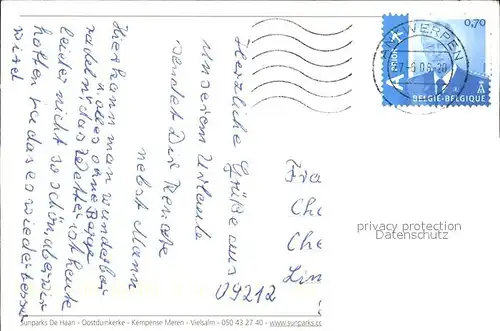 Herzliche Grüße aus
unserem Urlaub
sendet Dir Renate
nebst Mann
Hier kann man wunderbar
radeln, alles ohne Berge
das Wetter ist heute
leider nicht so schön, aber wir
hoffen ja das es wieder besser
wird
ANTWERPEN
-6.06-20
0,70
A PRIOR
BELGIE-BELGIQUE
Fra
Che
Che
Lin
09212
privacy protection
Datenschutz
Sunparks De Haan - Oostduinkerke - Kempense Meren - Vielsalm - 050 43 27 40 - www.sunparks.co